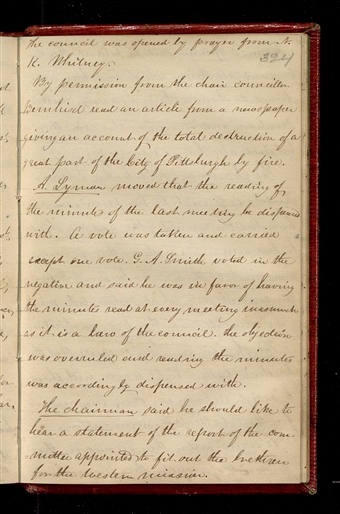 the council was opened by prayer from N.
324
K. Whitney.
By permission from the chair councillor
Bernhisel read an article from a newspaper
giving an account of the total destruction of a
great part of the City of Pittsburgh by fire.
A. Lyman moved that the reading of
the minutes of the last meeting be dispensed
with. A vote was taken and carried
except one vote. G. A. Smith voted in the
negative and said he was in favor of having
the minutes read at every meeting inasmuch
as it is a law of the council. the objection
was overruled and reading the minutes
was accordingly dispensed with.
The chairman said he should like to
hear a statement of the report of the com-
mittee appointed to fit out the brethren
for the western mission.